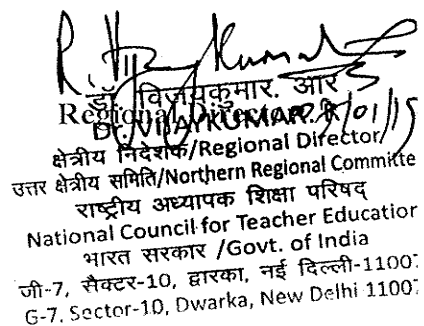 R. Vijay Kumar
डॉ. विजयकुमार. आर
Regional Director
Dr. VIJAYKUMAR. R
क्षेत्रीय निदेशक/Regional Director
उत्तर क्षेत्रीय समिति/Northern Regional Committe
राष्ट्रीय अध्यापक शिक्षा परिषद्
National Council for Teacher Education
भारत सरकार /Govt. of India
जी-7, सैक्टर-10, द्वारका, नई दिल्ली-11007
G-7, Sector-10, Dwarka, New Delhi 11007